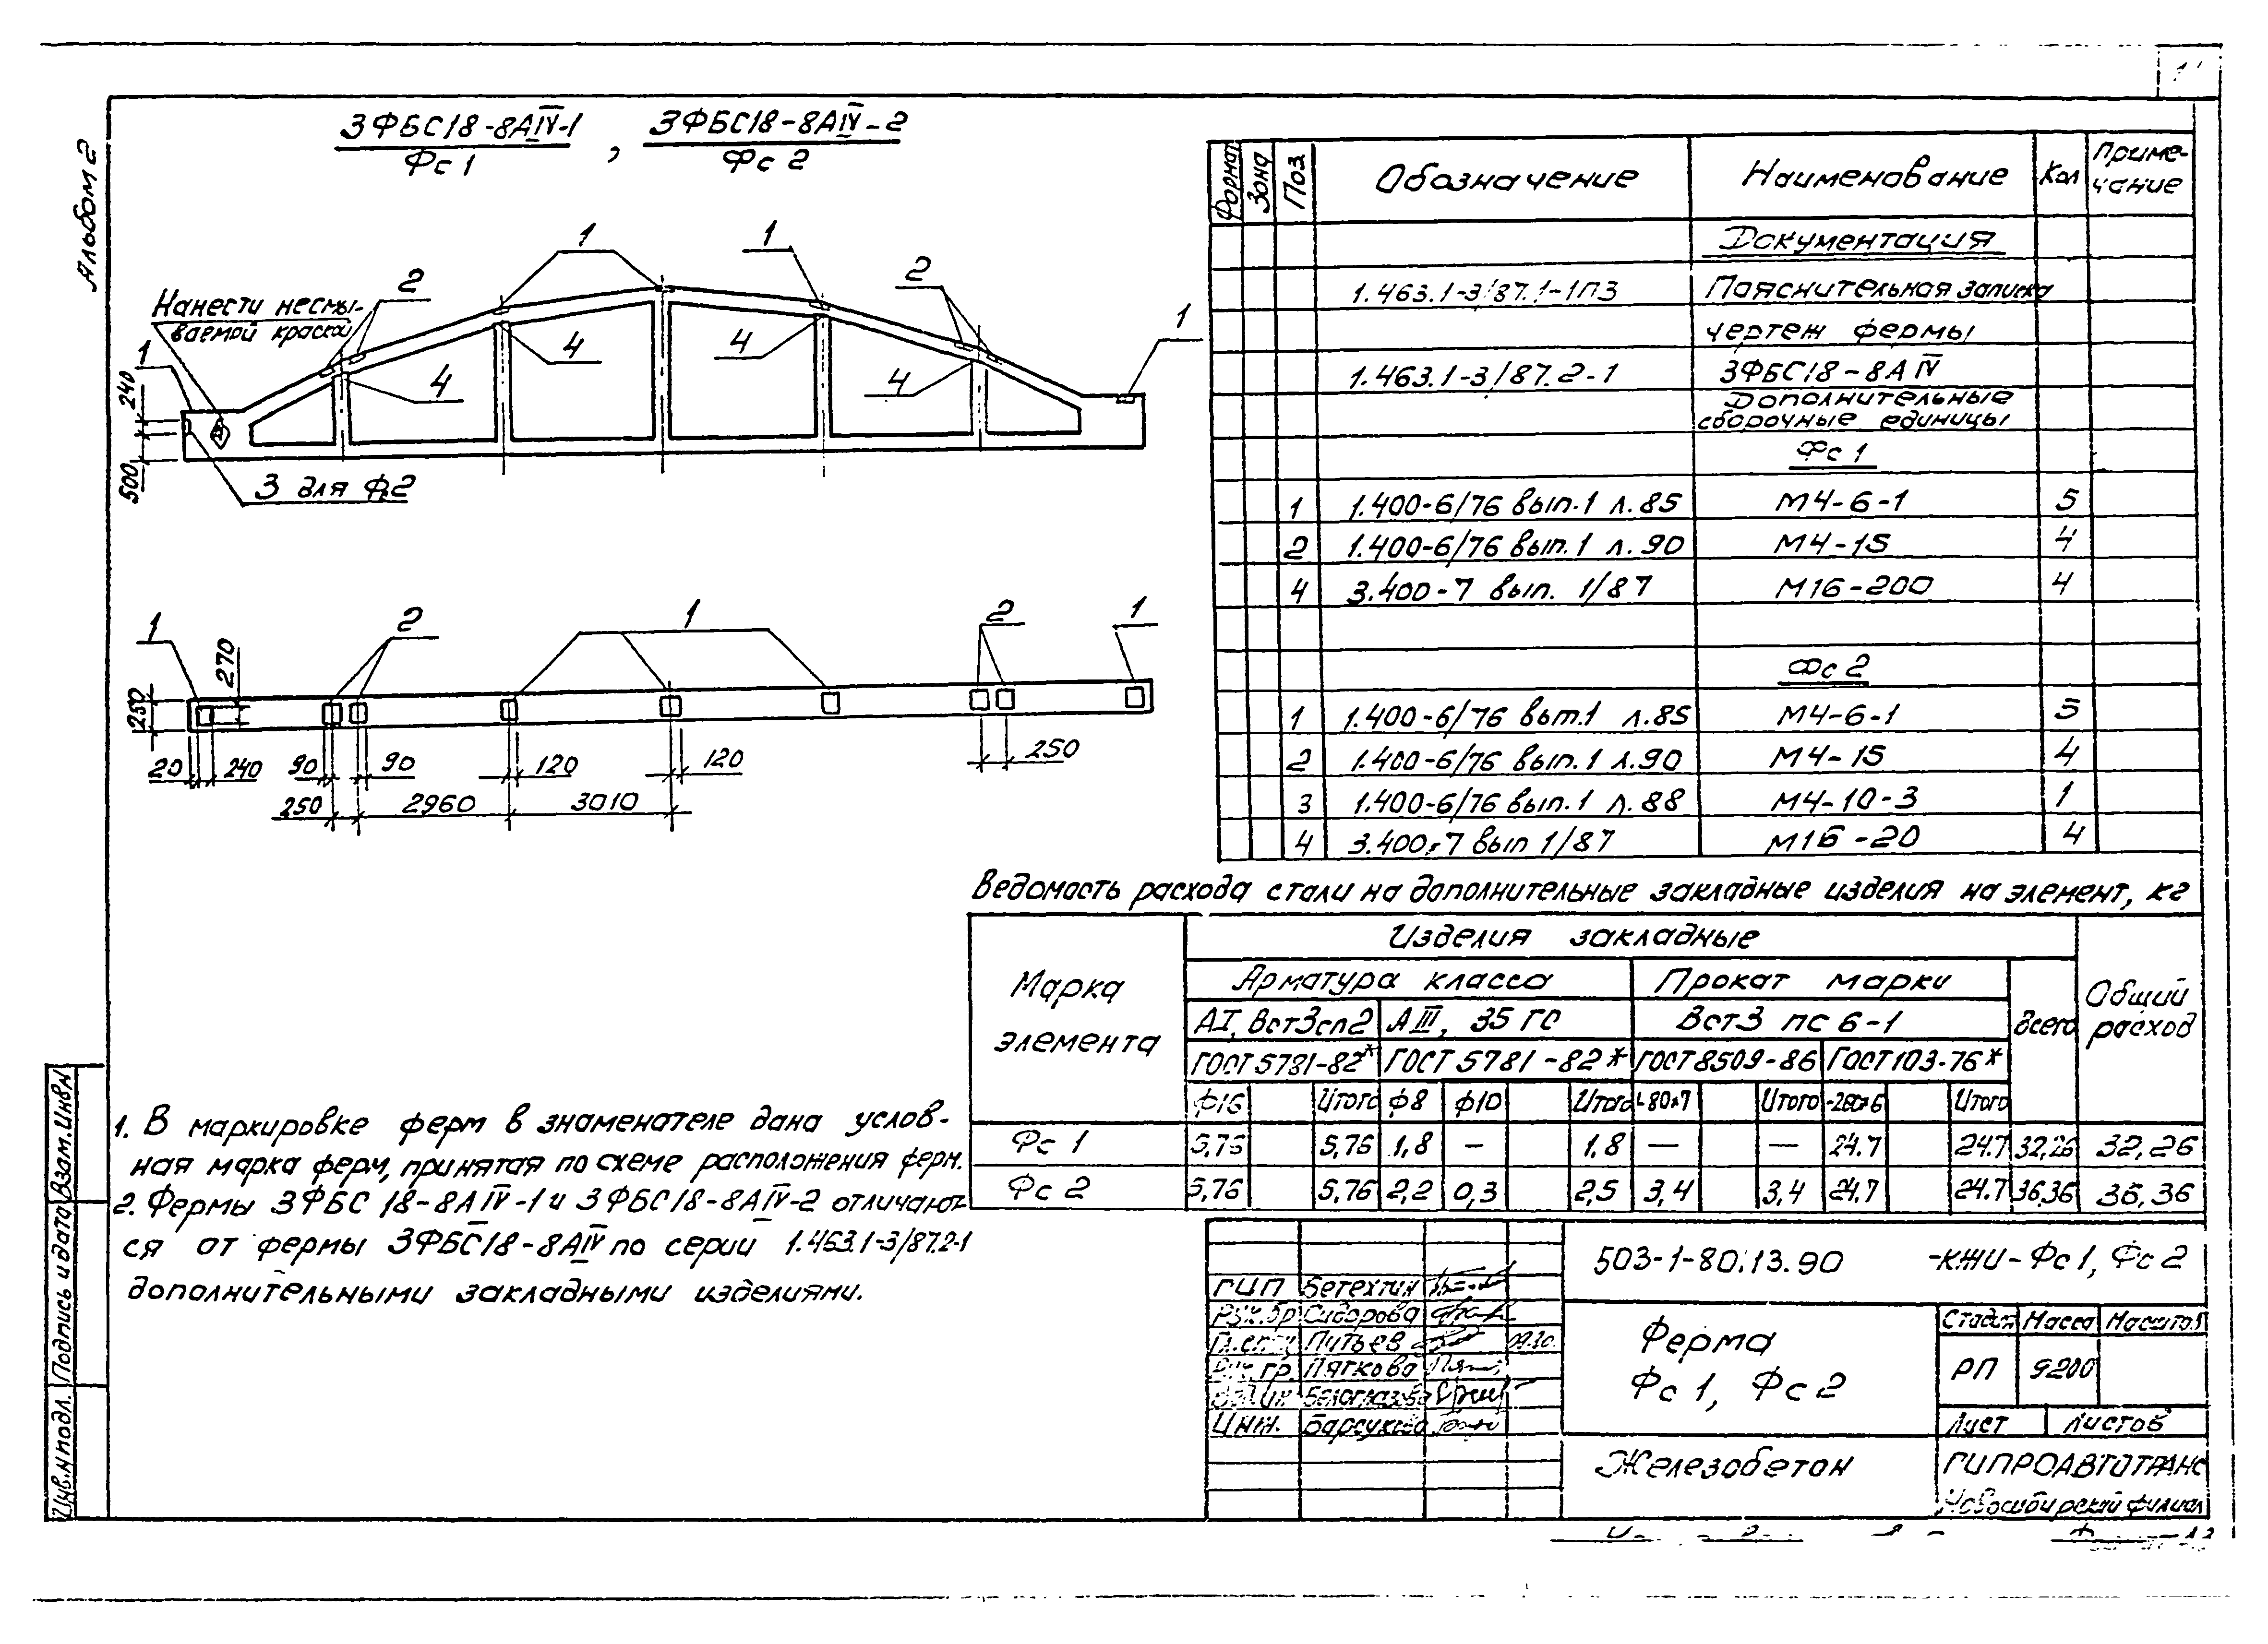 Альбом 2
3ФБС18-8АIV-1 , 3ФБС18-8АIV-2
Фс 1 Фс 2
1 1 2 2 1
Нанести несмы-
ваемой краской
1 4 4 4 4
240
500
3 для Ф.2
1 2 1 2 1
270
250
20 240 90 90 120 120 250
250 2960 3010
1. В маркировке ферм в знаменателе дана услов-
ная марка ферм, принятая по схеме расположения ферм.
2. Фермы 3ФБС 18-8АIV-1 и 3ФБС18-8АIV-2 отличают-
ся от фермы 3ФБС18-8АIV по серии 1.463.1-3/87.2-1
дополнительными закладными изделиями.
Формат Зона Поз. Обозначение Наименование Кол Приме-
чание
Документация
1.463.1-3/87.1-1ПЗ Пояснительная записка
чертеж фермы
1.463.1-3/87.2-1 3ФБС18-8А IV
Дополнительные
сборочные единицы
Фс 1
1 1.400-6/76 вып.1 л.85 М4-6-1 5
2 1.400-6/76 вып.1 л.90 М4-15 4
4 3.400-7 вып. 1/87 М16-200 4
Фс 2
1 1.400-6/76 вып.1 л.85 М4-6-1 5
2 1.400-6/76 вып.1 л.90 М4-15 4
3 1.400-6/76 вып.1 л.88 М4-10-3 1
4 3.400-7 вып 1/87 М16-20 4
Ведомость расхода стали на дополнительные закладные изделия на элемент, кг
Марка
элемента
Изделия закладные
Общий
расход
Арматура класса Прокат марки Всего
АI, Вст3сп2 АIII, 35 ГС Вст3 пс 6-1
ГОСТ 5781-82* ГОСТ 5781-82* ГОСТ 8509-86 ГОСТ 103-76*
ф16 Итого ф8 ф10 Итого L80x7 Итого -280x6 Итого
Фс 1 5,76 5,76 1,8 — 1,8 — — 24.7 24.7 32,26 32,26
Фс 2 5,76 5,76 2,2 0,3 2,5 3,4 3,4 24.7 24.7 36,36 36,36
503-1-80.13.90 -КЖИ-Фс 1, Фс 2
ГИП Бетехтин
Рук.бр Сидорова
Гл.спец Питьев
Рук.гр. Пяткова
Инж. Барсукова
Ферма
Фс 1, Фс 2
Стадия Масса Масштаб
РП 9200
Лист Листов
Железобетон
ГИПРОАВТОТРАНС
Новосибирский филиал
Инв.№подл. Подпись и дата Взам.Инв№